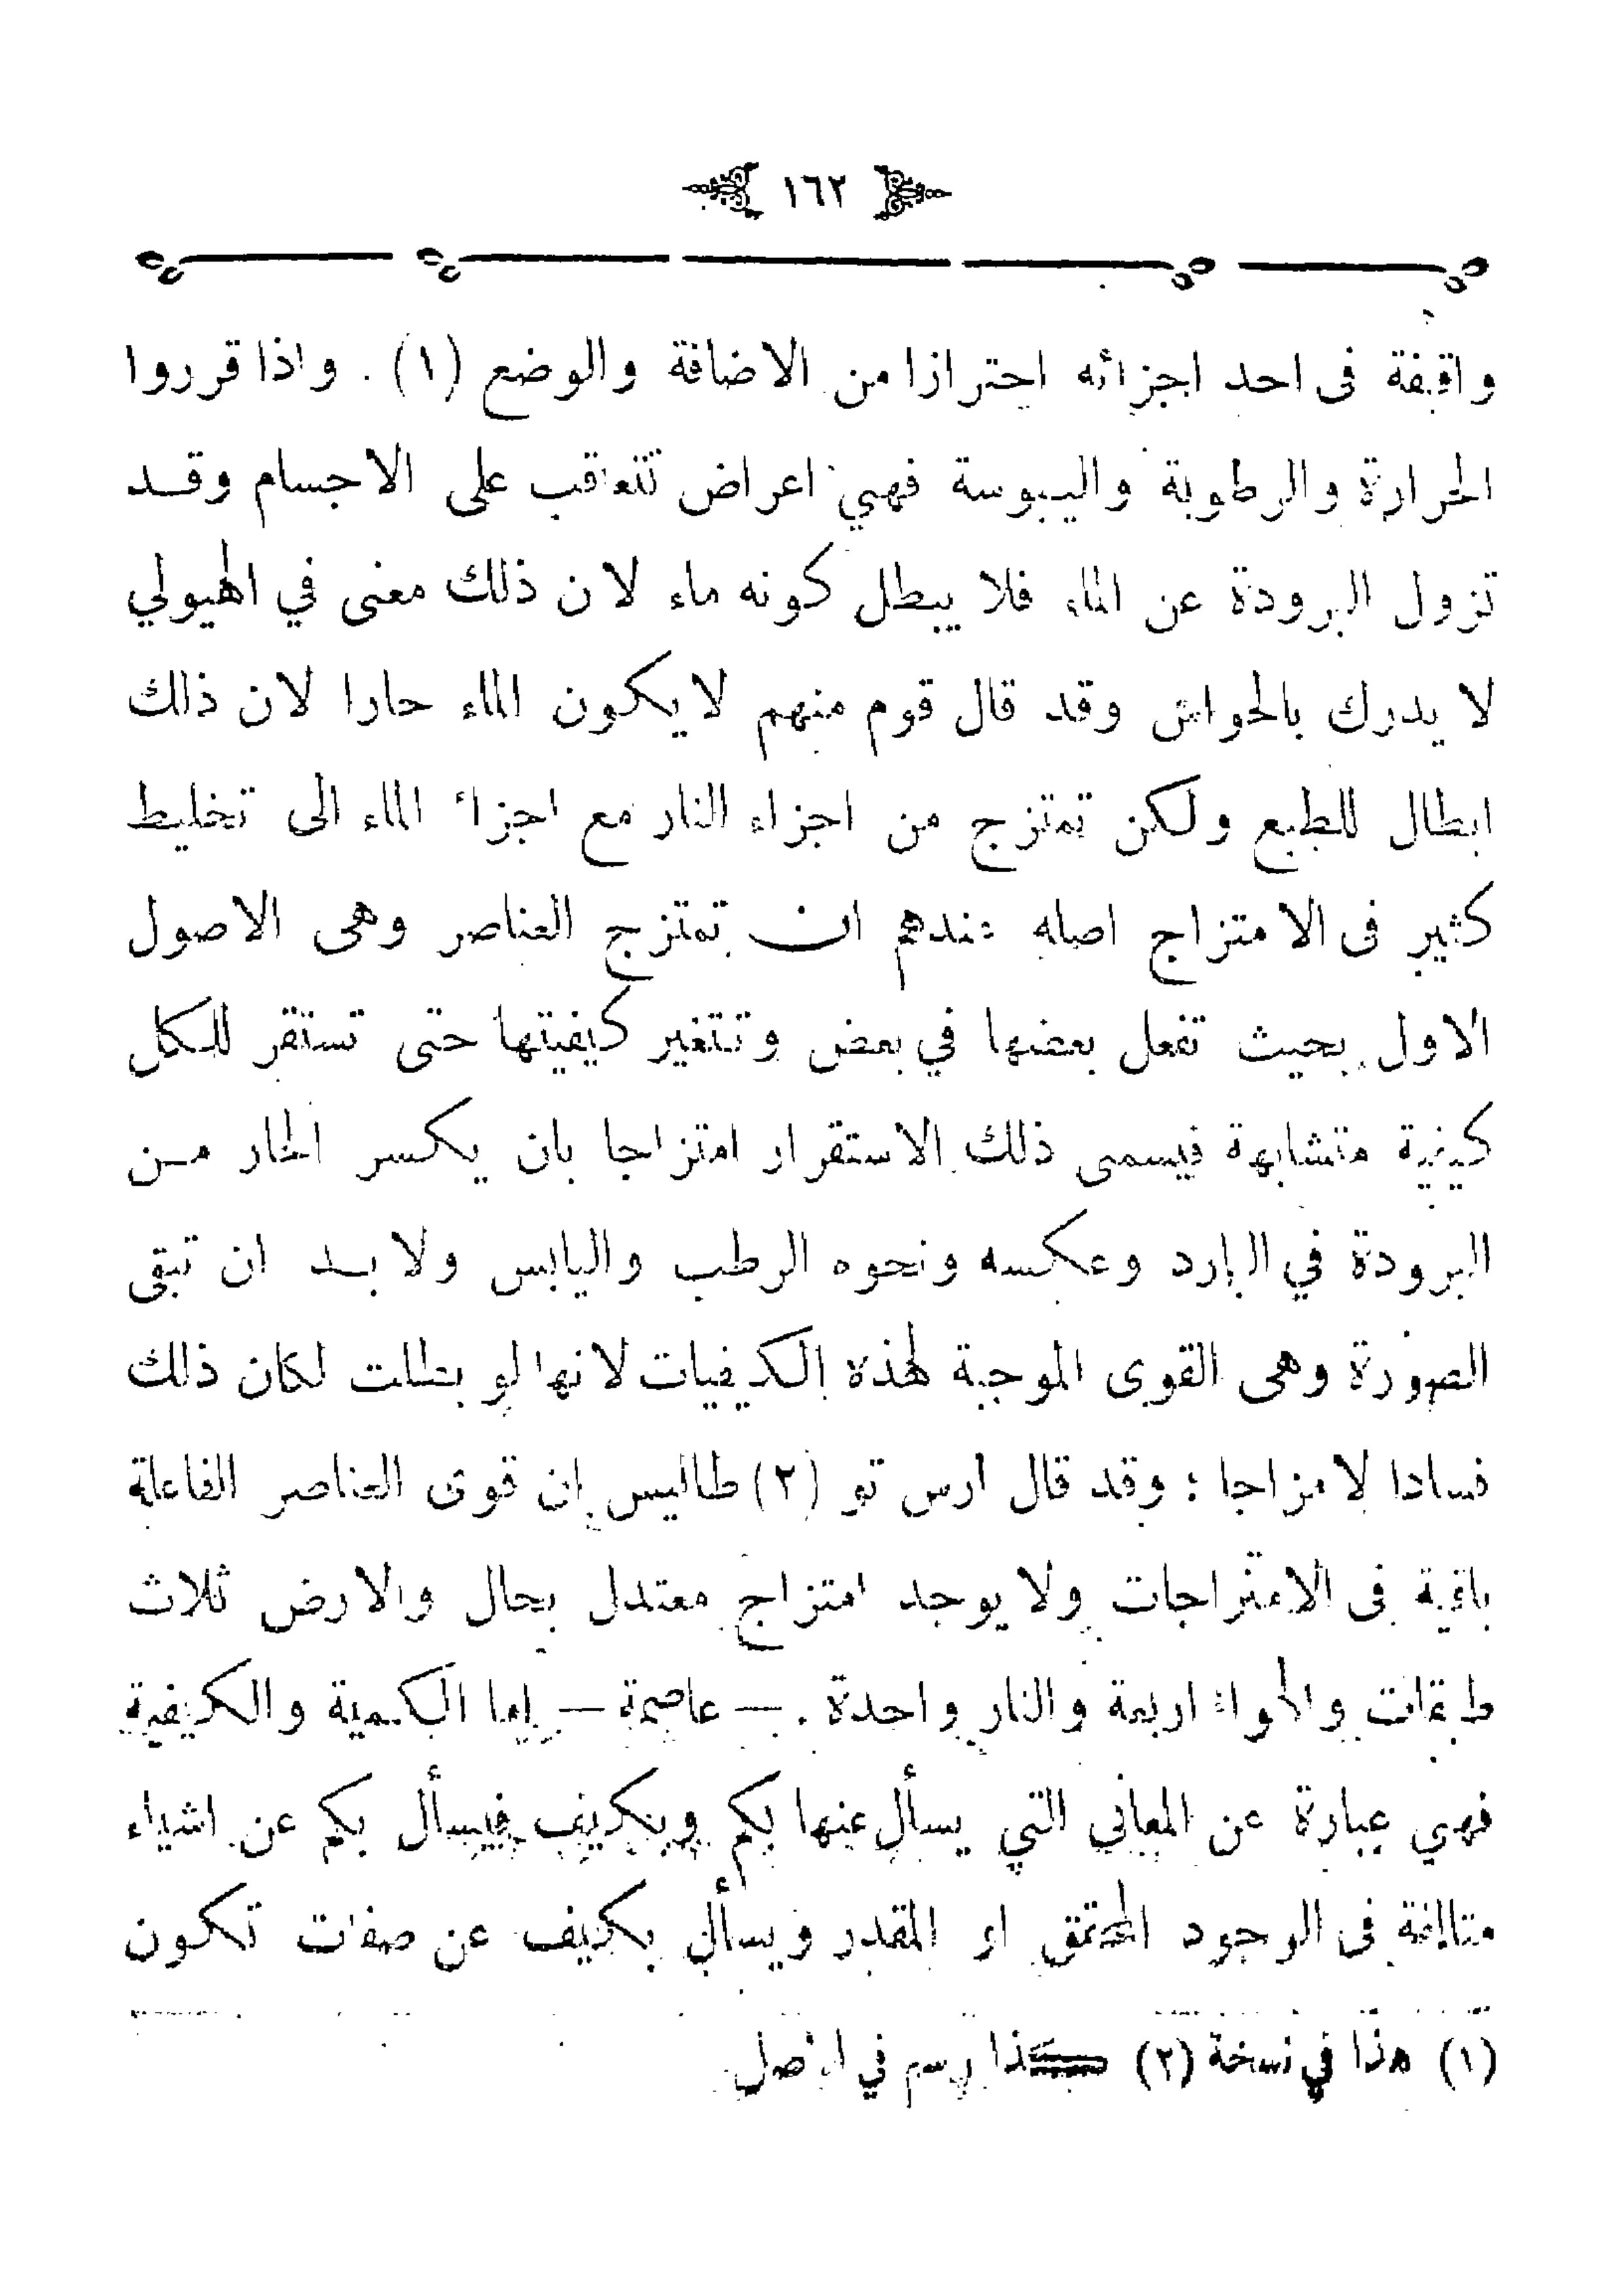 ١٦٢
واقفة فى احد اجزائه احترازا من الاضافة والوضع (١) . واذا قرروا
الحرارة والرطوبة واليبوسة فهي اعراض تتعاقب على الاجسام وقد
تزول البرودة عن الماء فلا يبطل كونه ماء لان ذلك معنى في الهيولي
لا يدرك بالحواس وقد قال قوم منهم لا يكون الماء حارا لان ذلك
ابطال للطبع ولكن تمتزج من اجزاء النار مع اجزاء الماء الى تخليط
كثير فى الامتزاج اصله عندهم ان تمتزج العناصر وهى الاصول
الاول بحيث تفعل بعضها في بعض وتتغير كيفيتها حتى تستقر للكل
كيفية متشابهة فيسمى ذلك الاستقرار امتزاجا بان يكسر الحار من
البرودة في البارد وعكسه ونحوه الرطب واليابس ولا بد ان تبقى
الصورة وهى القوى الموجبة لهذه الكيفيات لانها لو بطلت لكان ذلك
فسادا لا مزاجا : وقد قال ارس تو (٢) طاليس ان قوى العناصر الفاعلة
باقية فى الامتزاجات ولا يوجد امتزاج معتدل بحال والارض ثلاث
طبقات والهواء اربعة والنار واحدة . — عاصمة — اما الكمية والكيفية
فهي عبارة عن المعانى التي يسأل عنها بكم وبكيف فيسأل بكم عن اشياء
متالفة فى الوجود المحقق او المقدر ويسأل بكيف عن صفات تكون
(١) هذا في نسخة (٢) كذا رسم في الاصل